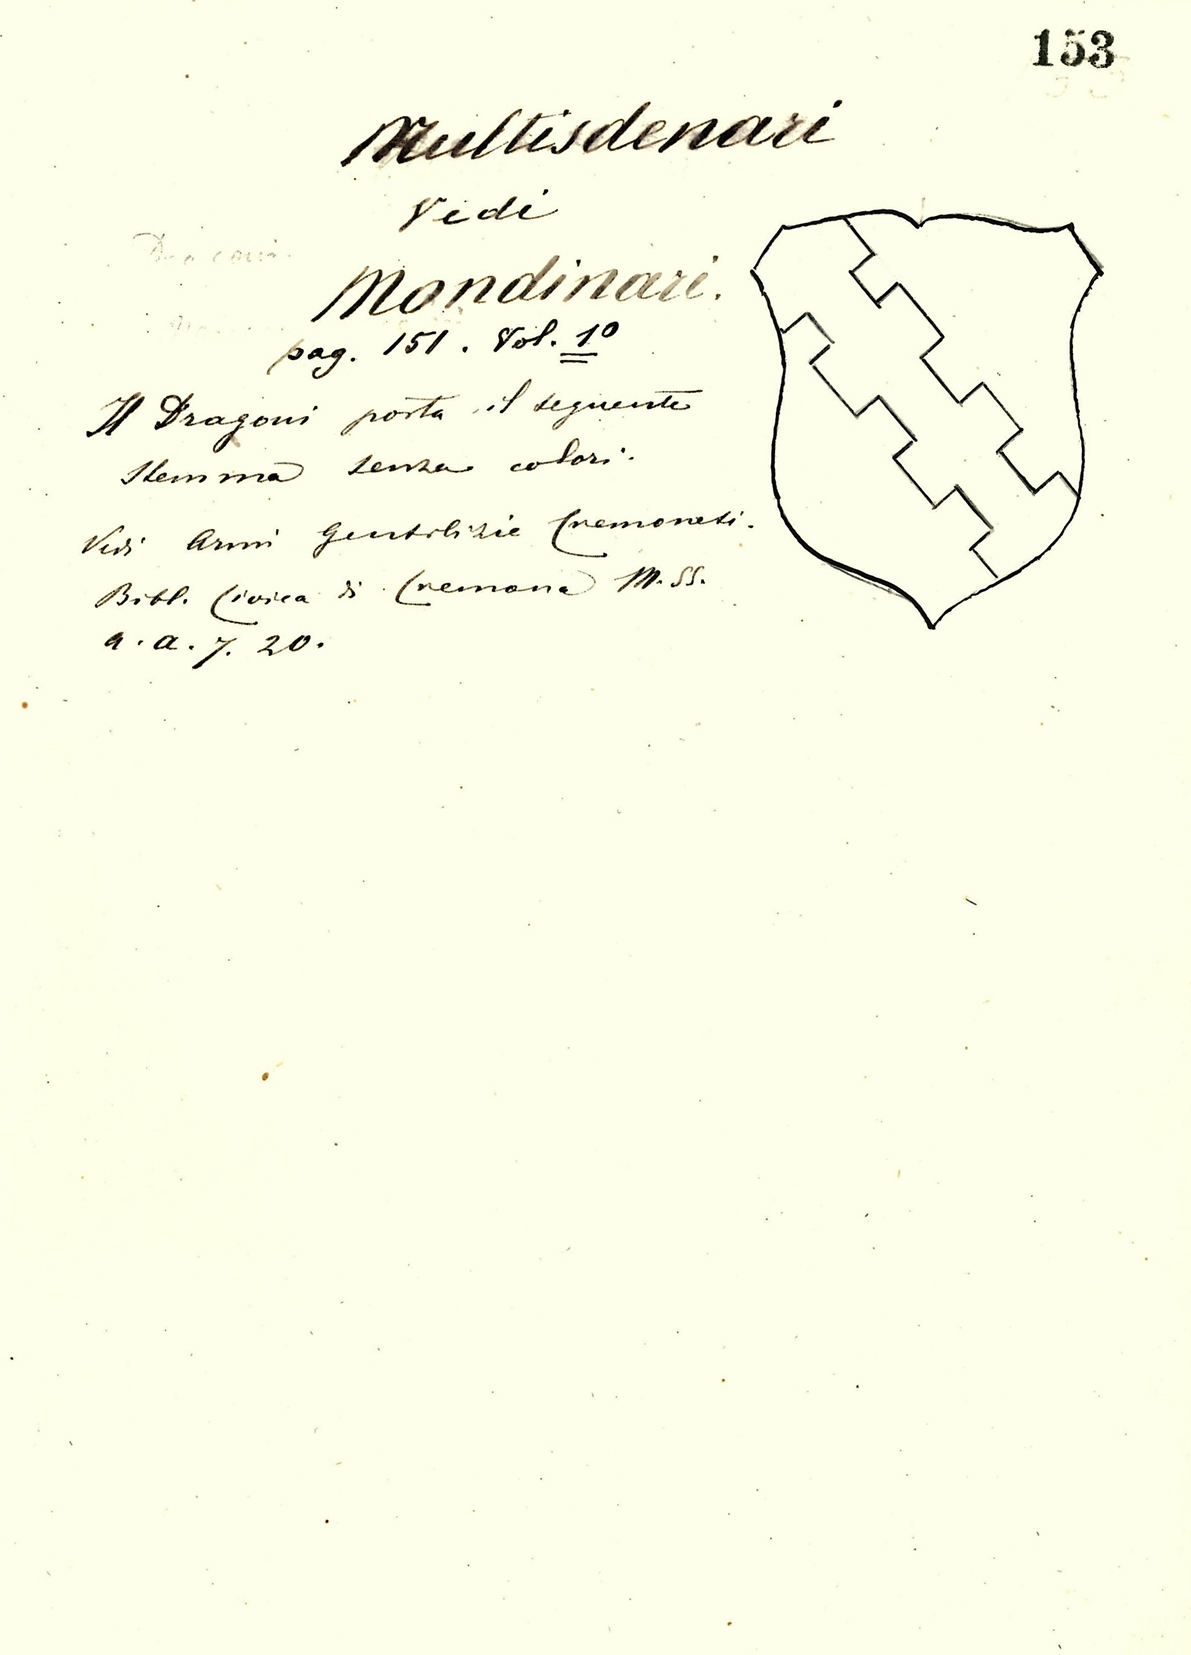 153
Multisdenari
Vedi
Mondinari.
pag. 151. Vol. 1º
Il Dragoni porta il seguente
stemma senza colori.
Vedi Armi Gentilizie Cremonesi.
Bibl. Civica di Cremona M.SS.
a. a. 7. 20.